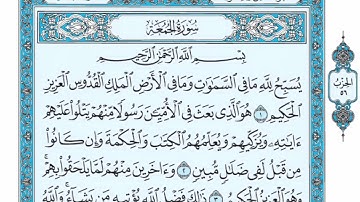 سُورَةُ الجُمُعَةِ
بِسْمِ اللَّهِ الرَّحْمَٰنِ الرَّحِيمِ
يُسَبِّحُ لِلَّهِ مَا فِي السَّمَاوَاتِ وَمَا فِي الْأَرْضِ الْمَلِكِ الْقُدُّوسِ الْعَزِيزِ
الْحَكِيمِ ١ هُوَ الَّذِي بَعَثَ فِي الْأُمِّيِّينَ رَسُولًا مِنْهُمْ يَتْلُو عَلَيْهِمْ
آيَاتِهِ وَيُزَكِّيهِمْ وَيُعَلِّمُهُمُ الْكِتَابَ وَالْحِكْمَةَ وَإِنْ كَانُوا
مِنْ قَبْلُ لَفِي ضَلَالٍ مُبِينٍ ٢ وَآخَرِينَ مِنْهُمْ لَمَّا يَلْحَقُوا بِهِمْ
وَهُوَ الْعَزِيزُ الْحَكِيمُ ٣ ذَٰلِكَ فَضْلُ اللَّهِ يُؤْتِيهِ مَنْ يَشَاءُ وَاللَّهُ
الحزب
٥٦